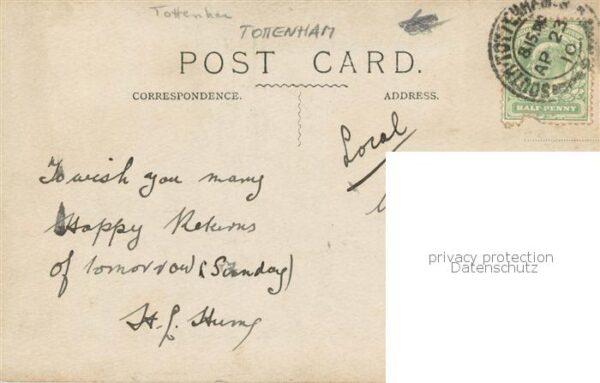 Tottenham
TOTTENHAM
POST CARD.
CORRESPONDENCE.
ADDRESS.
SOUTH TOTTENHAM
8.15 PM
AP 23
10
HALF PENNY
Local
To wish you many
Happy Returns
of tomorrow (Sunday)
privacy protection
Datenschutz